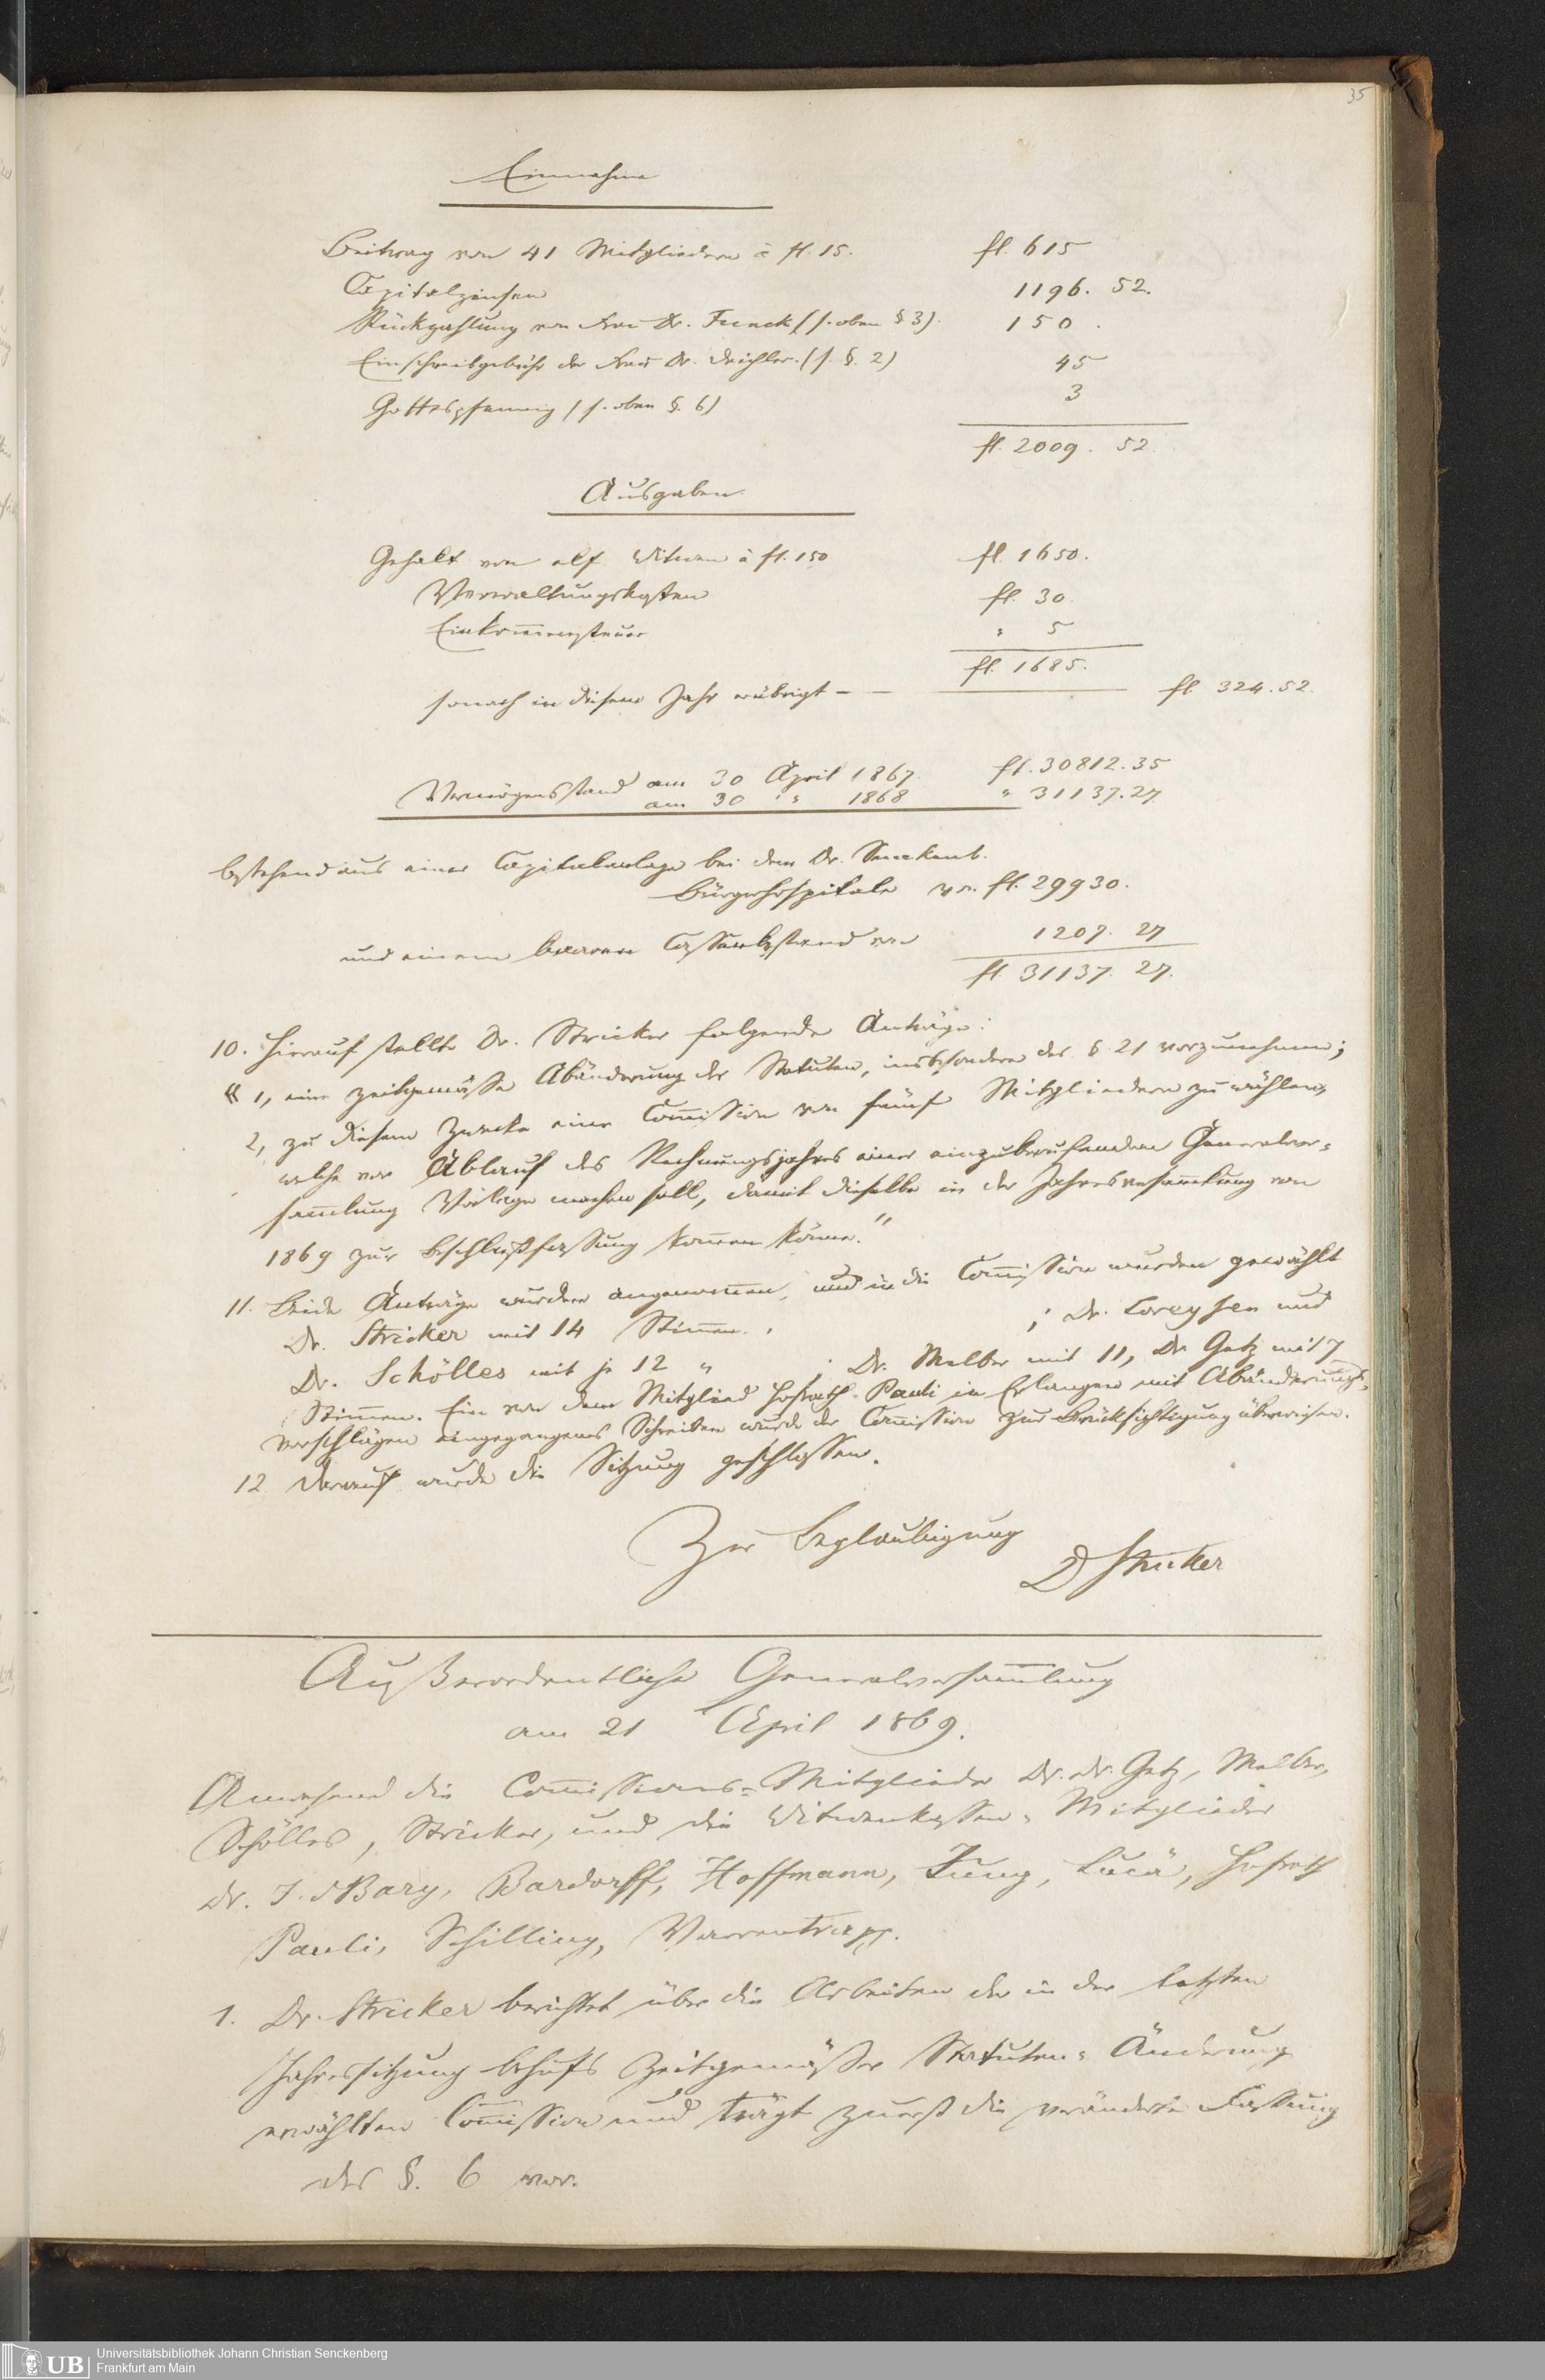 35
Einnahme
Beitrag von 41 Mitgliedern à fl. 15. fl. 615
Capitalzinsen 1196. 52.
Rückzahlung von Frau Dr. Funck (s. oben § 3). 150.
Einschreibgebühr der Frau Dr. Deichler. (s. §. 2) 45
Gottespfennig (s. oben §. 6) 3
fl. 2009. 52.
Ausgaben
Gehalt von elf Witwen à fl. 150 fl. 1650.
Verwaltungskosten fl. 30.
Einkom̄ensteuer " 5
fl. 1685.
sonach in diesem Jahr erübrigt — — fl. 324. 52.
Vermögensstand am 30 April 1867. fl. 30812. 35
am 30 " 1868 " 31137. 27.
bestehend aus einer Capitalanlage bei dem Dr. Senckenb.
Bürgerhospitale von fl. 29930.
und einem baaren Cassenbestand von 1207. 27
fl. 31137. 27.
10. Hierauf stellte Dr. Stricker folgende Anträge:
« 1, eine zeitgemässe Abänderung der Statuten, insbesondere des § 21 vorzunehmen;
2, zu diesem Zwecke eine Com̄ission von fünf Mitgliedern zu wählen,
welche vor Ablauf des Rechnungsjahres einer einzuberufenden Generalver=
sam̄lung Vorlage machen soll, damit dieselbe in der Jahresversam̄lung von
1869 zur Beschlußfassung kom̄en könne."
11. Beide Anträge wurden angenom̄en, und in die Com̄ission wurden gewählt
Dr. Stricker mit 14 Stim̄en. ; Dr. Loreysen und
Dr. Schölles mit je 12 " . Dr. Melber mit 11, Dr. Getz mit 7
Stim̄en. Ein von dem Mitglied Hofrath Pauli in Erlangen mit Abänderungs=
vorschlägen eingegangenes Schreiben wurde der Com̄ission zur Berücksichtigung überwiesen.
12. Darauf wurde die Sitzung geschlossen.
Zur Beglaubigung
D Stricker
Außerordentliche Generalversam̄lung
am 21 April 1869.
Anwesend die Com̄issions=Mitglieder Dr. Dr. Getz, Melber,
Schölles, Stricker, und die Witwenkassen=Mitglieder
Dr. J. dBary, Bardorff, Hoffmann, Jung, Lucä, Hofrath
Pauli, Schilling, Varrentrapp.
1. Dr. Stricker berichtet über die Arbeiten der in der letzten
Jahressitzung behufs zeitgemäßer Statuten=Änderung
erwählten Com̄ission und trägt zuerst die veränderte Fassung
des §. 6 vor.
UB
Universitätsbibliothek Johann Christian Senckenberg
Frankfurt am Main